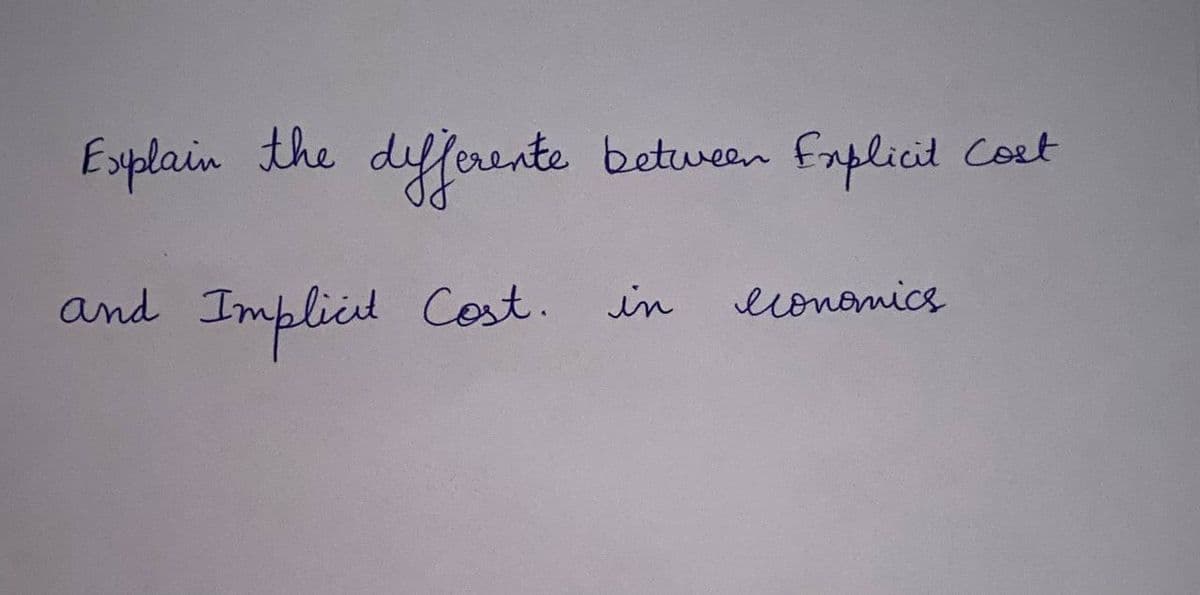 Explain the differente between Explicit Cost
and Implicit Cost. in economics